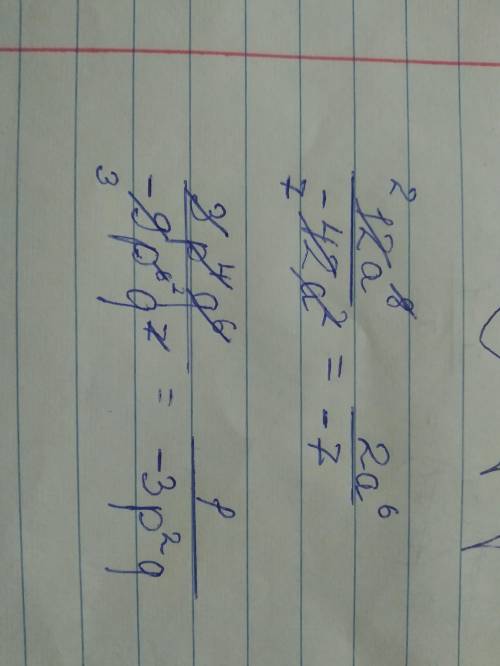 2 12a⁸
-42a² = 2a⁶
7 -7
3p⁴q⁶ 1
-9p⁶ ² q⁷ = -3p²q
3